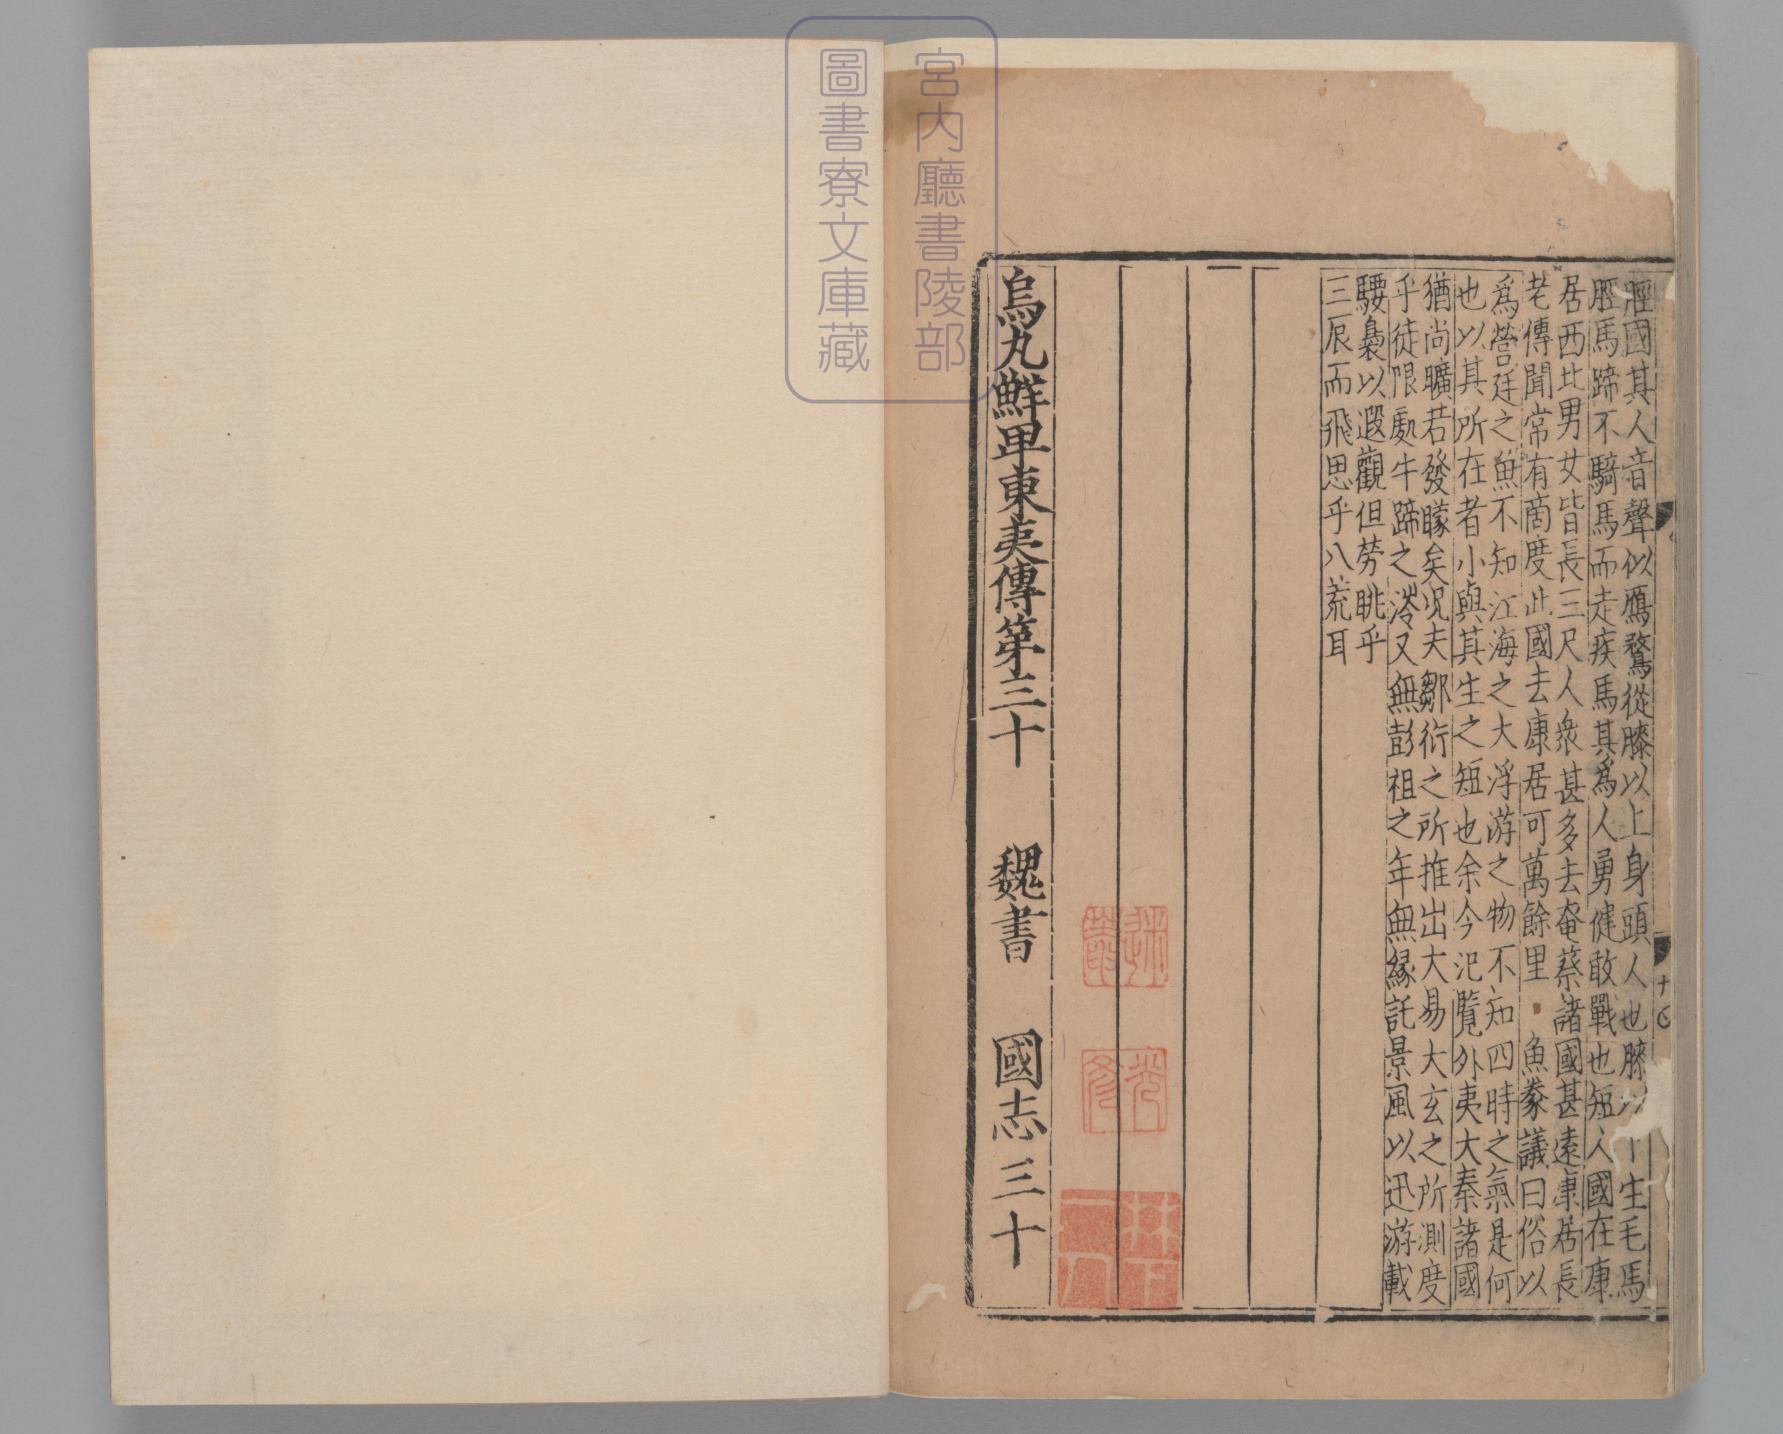 脛國其人音聲似鴈鶩從膝以上身頭人也膝以下生毛馬
脛馬蹄不騎馬而走疾馬其爲人勇健敢戰也短人國在康
居西北男女皆長三尺人衆甚多去奄蔡諸國甚遠康居長
老傳聞常有商度此國去康居可萬餘里 魚豢議曰俗以
爲營廷之魚不知江海之大浮游之物不知四時之氣是何
也以其所在者小與其生之短也余今汜覽外夷大秦諸國
猶尚曠若發矇矣况夫鄒衍之所推出大易大玄之所測度
乎徒限處牛蹄之涔又無彭祖之年無緣託景風以迅游載
騕褭以遐觀但勞眺乎
三辰而飛思乎八荒耳
烏丸鮮卑東夷傳第三十 魏書 國志三十
宮内廳書陵部
圖書寮文庫藏